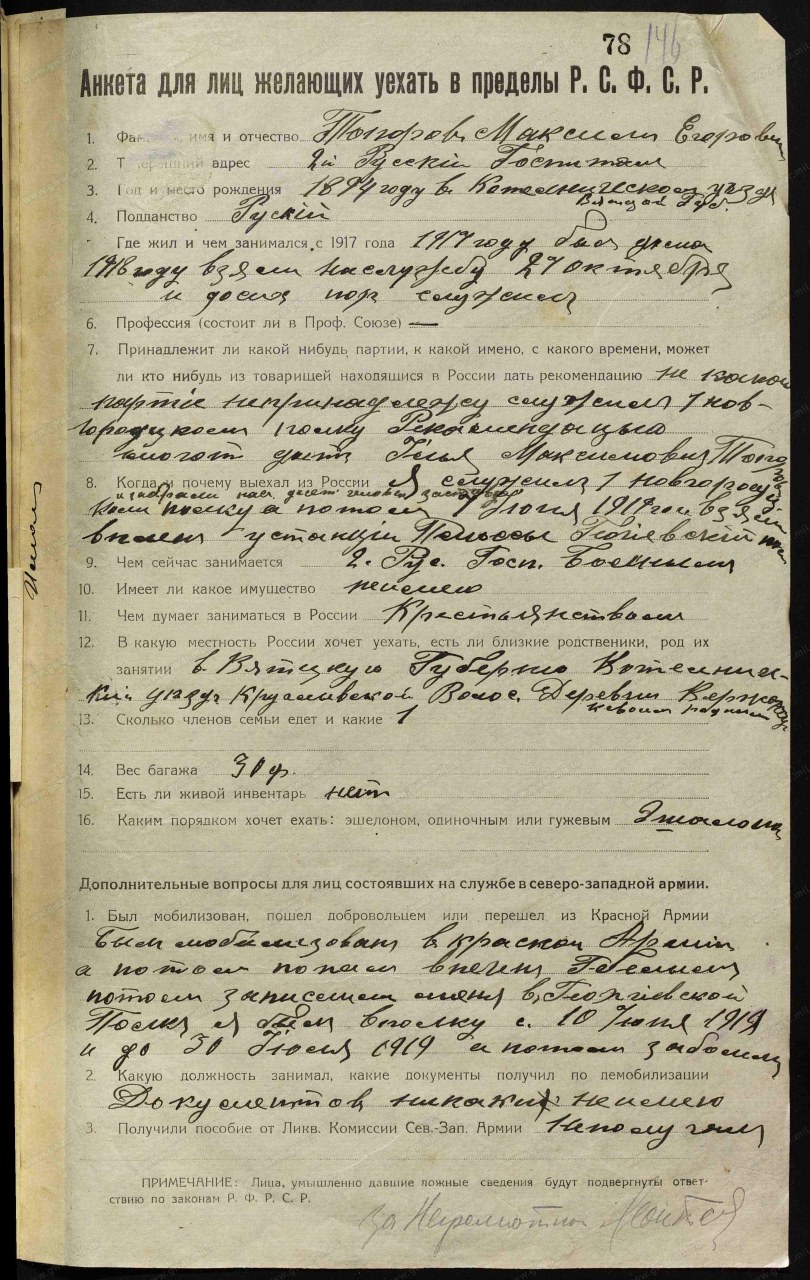 78 146
Анкета для лиц желающих уехать в пределы Р. С. Ф. С. Р.
1. имя и отчество Топоров Максим Егорович
2. адрес 2й Русскій Госпитал
3. Год и место рождения 1894 году в Котелническом уезде
Вятской Губ.
4. Подданство Рускій
Где жил и чем занимался с 1917 года 1917 году был дома
1918 году взяли наслужбу 27 октября
и досих пор служил
6. Профессия (состоит ли в Проф. Союзе) —
7. Принадлежит ли какой нибудь партии, к какой имено, с какого времени, может
ли кто нибудь из товарищей находящися в России дать рекомендацию не какой
партіе непринадлежу служил 1 нов-
городском полку Рекомендацыю
могот дать Илья Максимович Топоров
8. Когда и почему выехал из России Я служил 1 новгород
полку а потом 7 Июня 1919 года взяли
вплен устанціи
9. Чем сейчас занимается 2. Рус. Госп. Боеным
10. Имеет ли какое имущество неимею
11. Чем думает заниматься в России Крестьянством
12. В какую местность России хочет уехать, есть ли близкие родственики, род их
занятии в Вятцкую Губерню Котелнич-
кий уезда Волос. Деревни
к своим родным
13. Сколько членов семьи едет и какие 1
14. Вес багажа 30 ф.
15. Есть ли живой инвентарь нет
16. Каким порядком хочет ехать: эшелоном, одиночным или гужевым Эшалоном
Дополнительные вопросы для лиц состоявших на службе в северо-западной армии.
1. Был мобилизован, пошел добровольцем или перешел из Красной Армии
Был мобилизован в красной Арміи
а потом попал вплен Белым
потом записали меня в Георгіевской
Полк я был вполку с. 10 Июня 1919
и до 30 Июля 1919 а потом заболел
2. Какую должность занимал, какие документы получил по демобилизации
Документов никаких неимею
3. Получили пособие от Ликв. Комиссии Сев.-Зап. Армии Неполучал
ПРИМЕЧАНИЕ: Лица, умышленно давшие ложные сведения будут подвергнуты ответ-
ствию по законам Р. Ф. Р. С. Р.
за Неграмотна